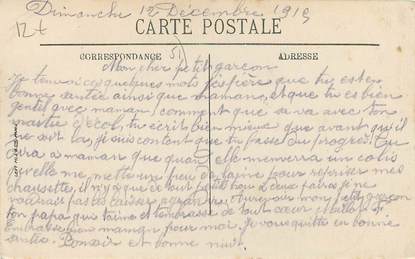 Dimanche 12 Décembre 1915
12+
CARTE POSTALE
CORRESPONDANCE
51
ADRESSE
Mon cher petit garçon
Je tenvoi ces quelques mots j'espère que tu est en
bonne santée ainsi que maman, et que tu es bien
gentil avec maman, comment que sa va avec ton
maitre d'écol, tu écrit bien mieux que avant qu'il
soit las, je suis content que tu fasse du progrès. Tu
dira a maman que quand elle menverra un colis
quelle me mettre un peu de laine pour repriser mes
chaussette, il n'y a que de tout petit trou
voudrait pas les laisser agrandire, mon petit garçon
ton papa qui t'aime et tembrasse de tout cœur
Embrasse bien maman pour moi. Je vous quitte en bonne
santée. Bonsoir et bonne nuit.